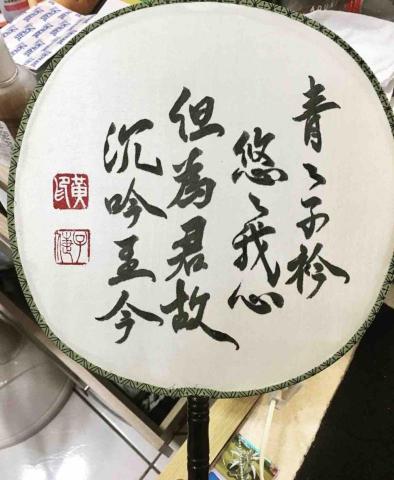 青々子衿
悠々我心
但為君故
沉吟至今